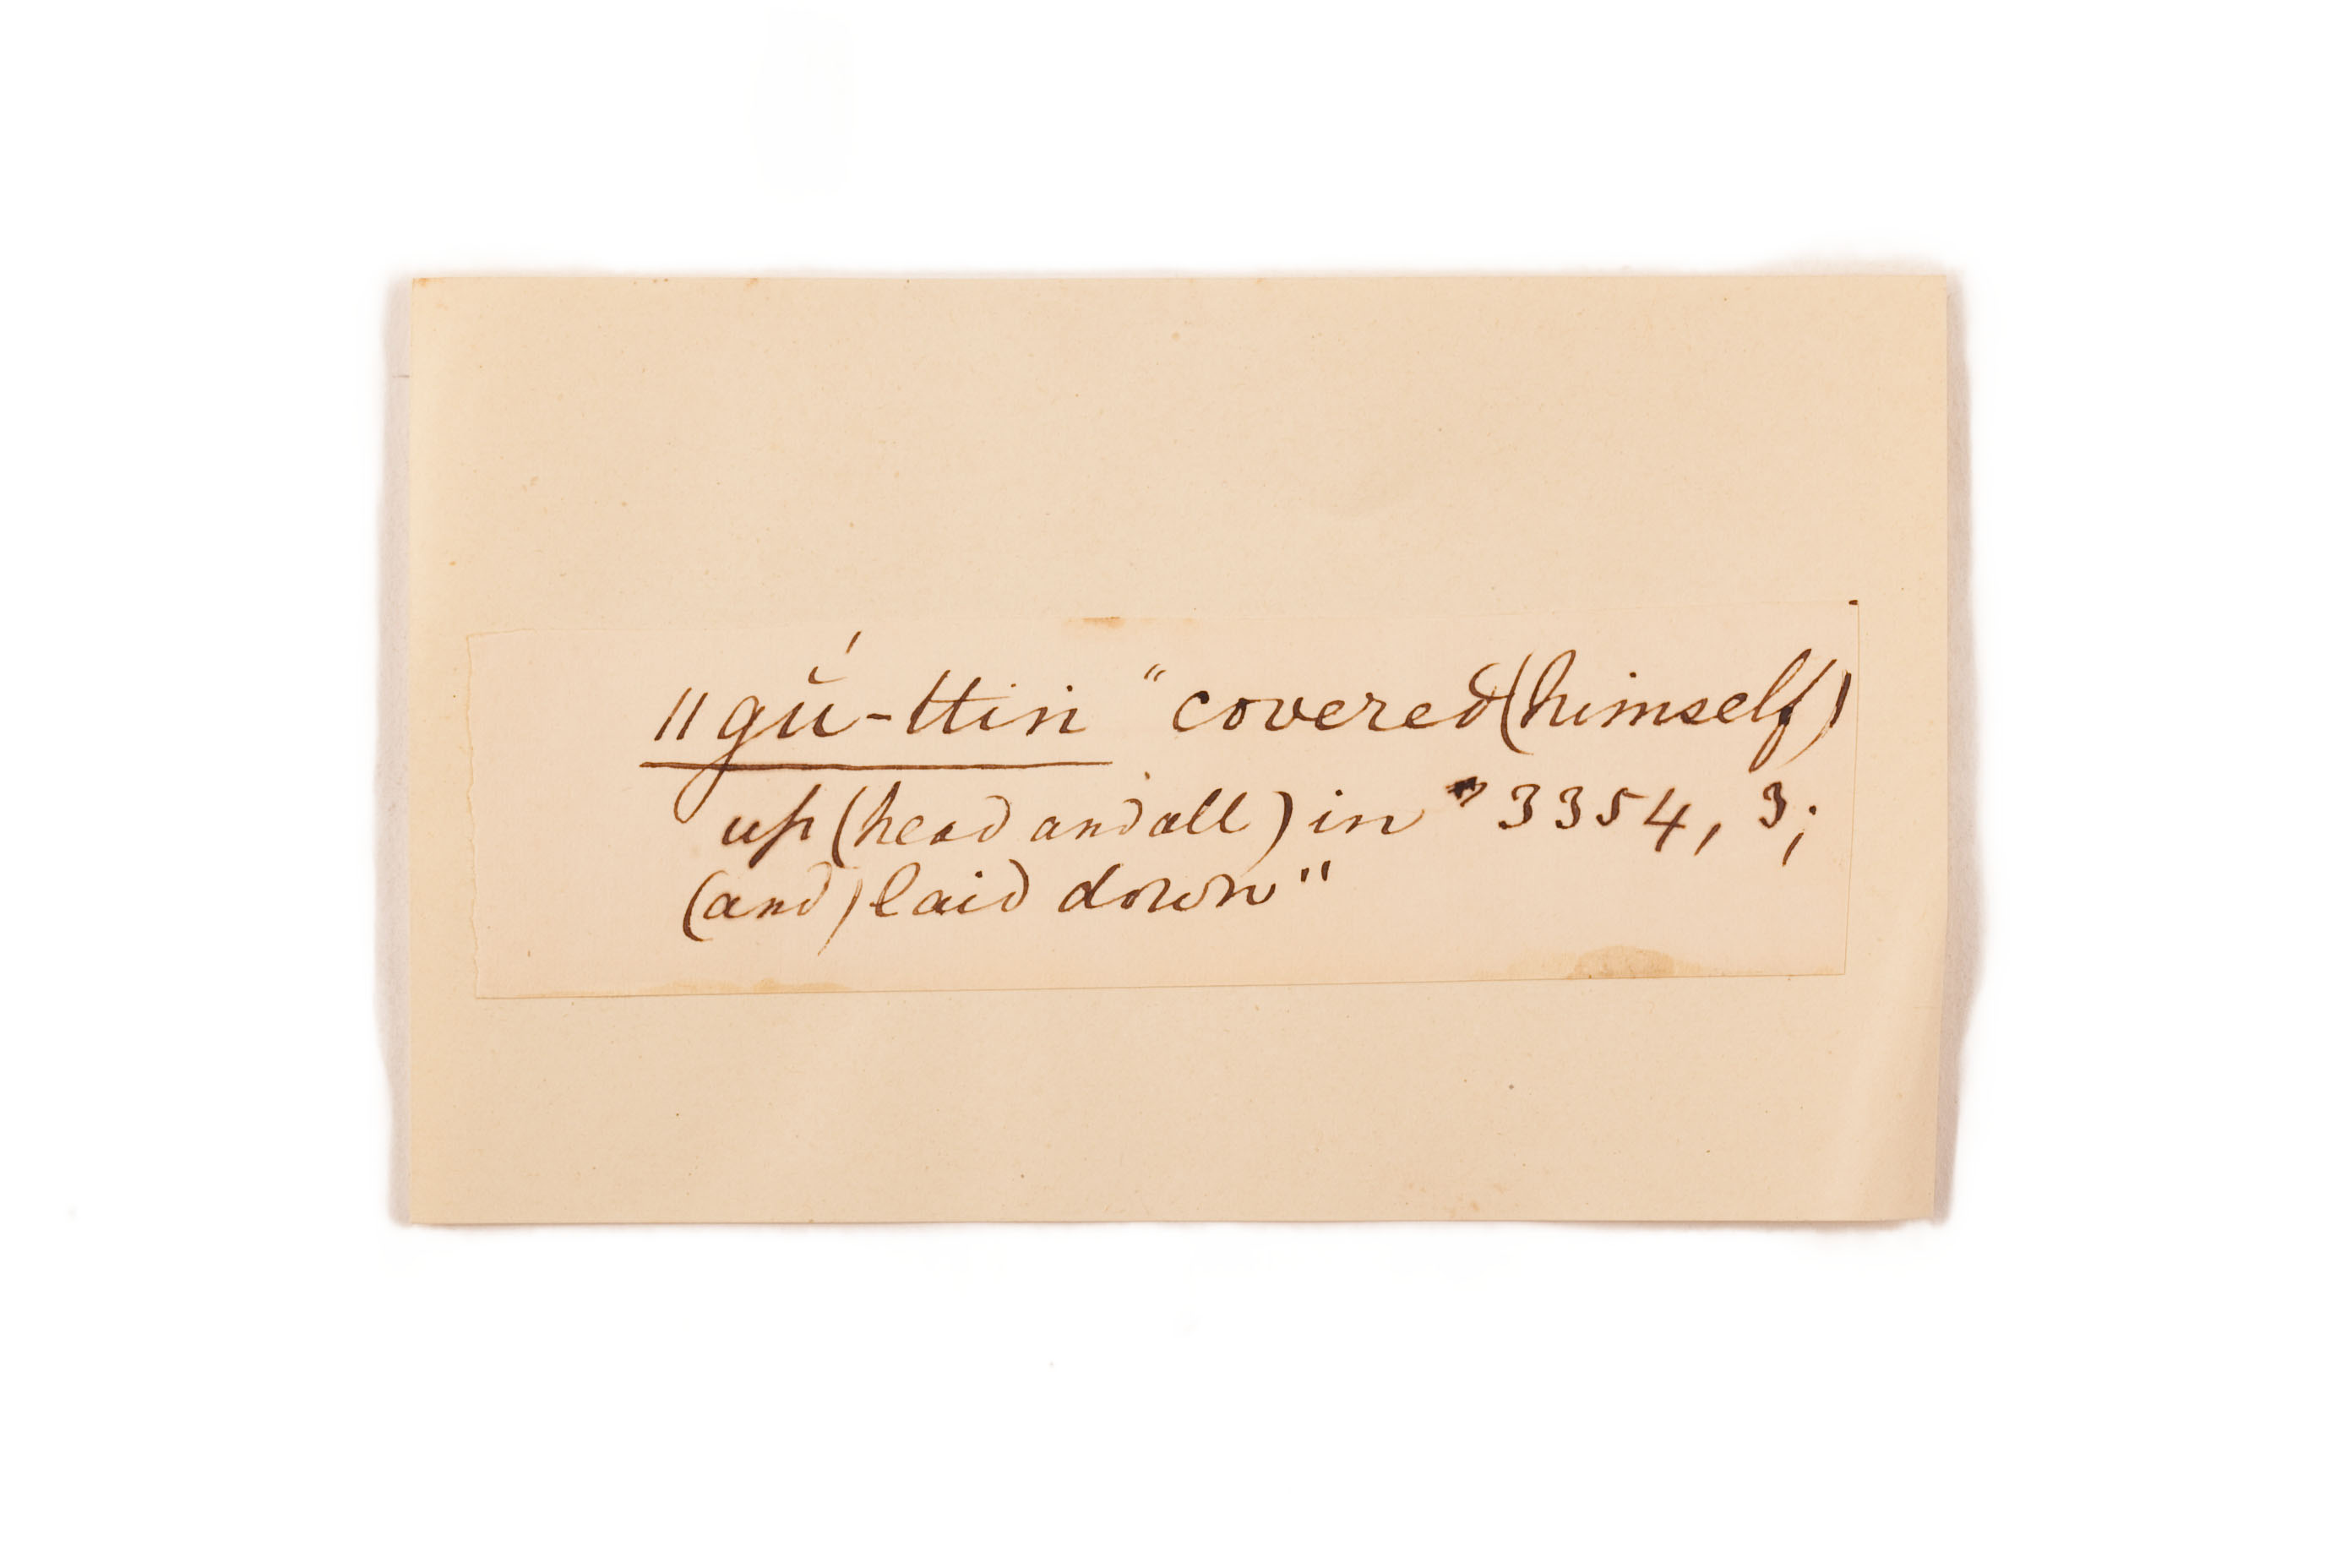 ǁgŭ́-ttin "covered (himself)
up (head and all) in 3354, 3;
(and) laid down"